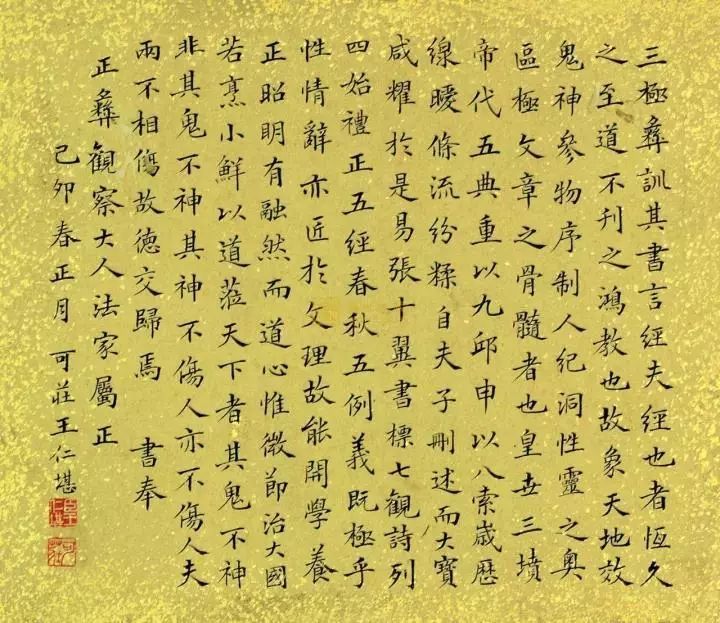 三極彝訓其書言經夫經也者恆久
之至道不刊之鴻教也故象天地效
鬼神參物序制人紀洞性靈之奧
區極文章之骨髓者也皇世三墳
帝代五典重以九邱申以八索歲歷
緜曖條流紛糅自夫子刪述而大寶
咸耀於是易張十翼書標七觀詩列
四始禮正五經春秋五例義既極乎
性情辭亦匠於文理故能開學養
正昭明有融然而道心惟微節治大國
若烹小鮮以道蒞天下者其鬼不神
非其鬼不神其神不傷人亦不傷人夫
兩不相傷故德交歸焉 書奉
正彝觀察大人法家屬正
己卯春正月 可莊王仁堪